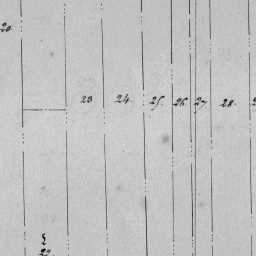 20
23 24 25. 26. 27 28.
22